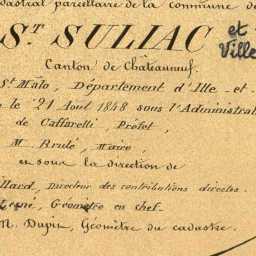 cadastral parcellaire de la commune de
ST. SULIAC et
Ville
Canton de Châteauneuf.
St. Malo, Département d'Ille - et -
le 21 Aout 1848 sous l'Administrat
de Caffarelli, Préfet,
M. Brulé, Maire,
en sous la direction de
llard, Directeur des contributions directes.
Géomètre en chef
M. Dupin, Géomètre du cadastre.